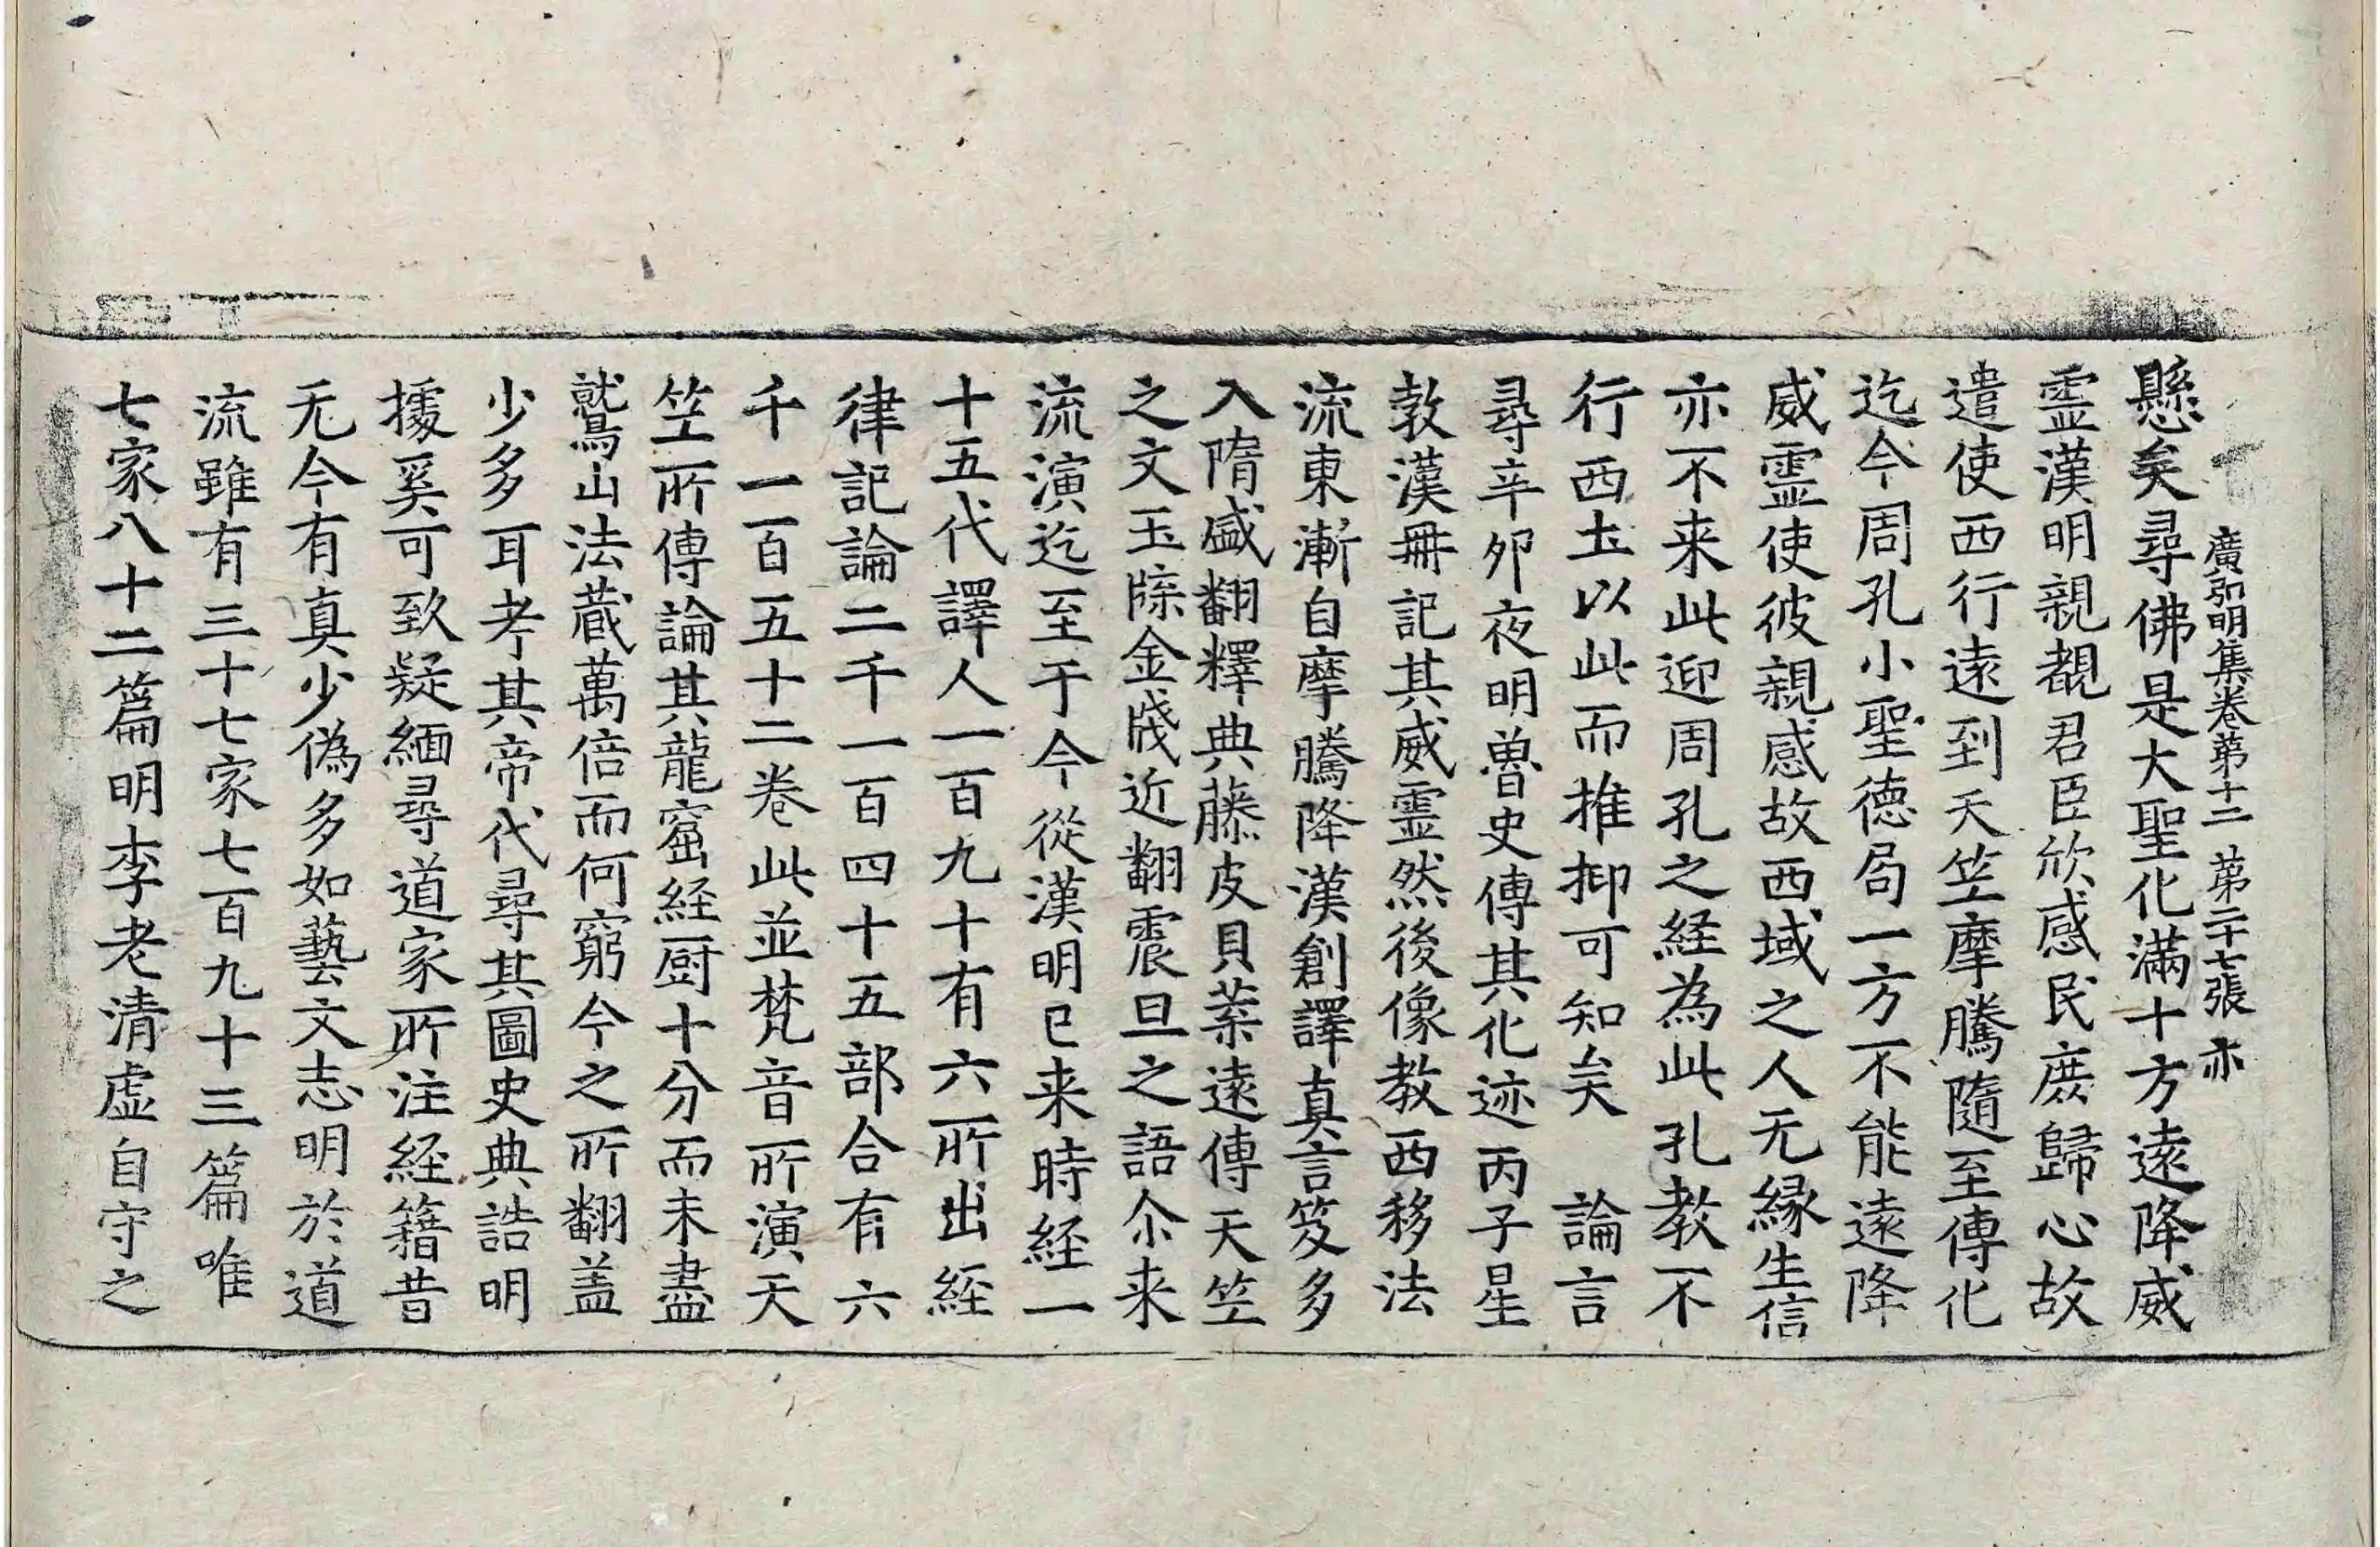 廣弘明集卷第十二 第二十七張 亦
懸矣尋佛是大聖化滿十方遠降威
霊漢明親覩君臣欣感民庶歸心故
遣使西行遠到天笁摩騰隨至傳化
迄今周孔小聖德局一方不能遠降
威霊使彼親感故西域之人无緣生信
亦不来此迎周孔之経為此孔教不
行西土以此而推抑可知矣　論言
尋辛夘夜明魯史傳其化迹丙子星
敦漢冊記其威霊然後像教西移法
流東漸自摩騰降漢創譯真言笈多
入隋盛翻釋典藤皮貝葉遠傳天笁
之文玉牒金牋近翻震旦之語尒来
流演迄至于今從漢明已来時経一
十五代譯人一百九十有六所出経
律記論二千一百四十五部合有六
千一百五十二卷此並梵音所演天
笁所傳論其龍窟経厨十分而未盡
鷲山法蔵萬倍而何窮今之所翻盖
少多耳考其帝代尋其圖史典誥明
據奚可致疑緬尋道家所注経籍昔
无今有真少偽多如藝文志明於道
流雖有三十七家七百九十三篇唯
七家八十二篇明李老清虛自守之